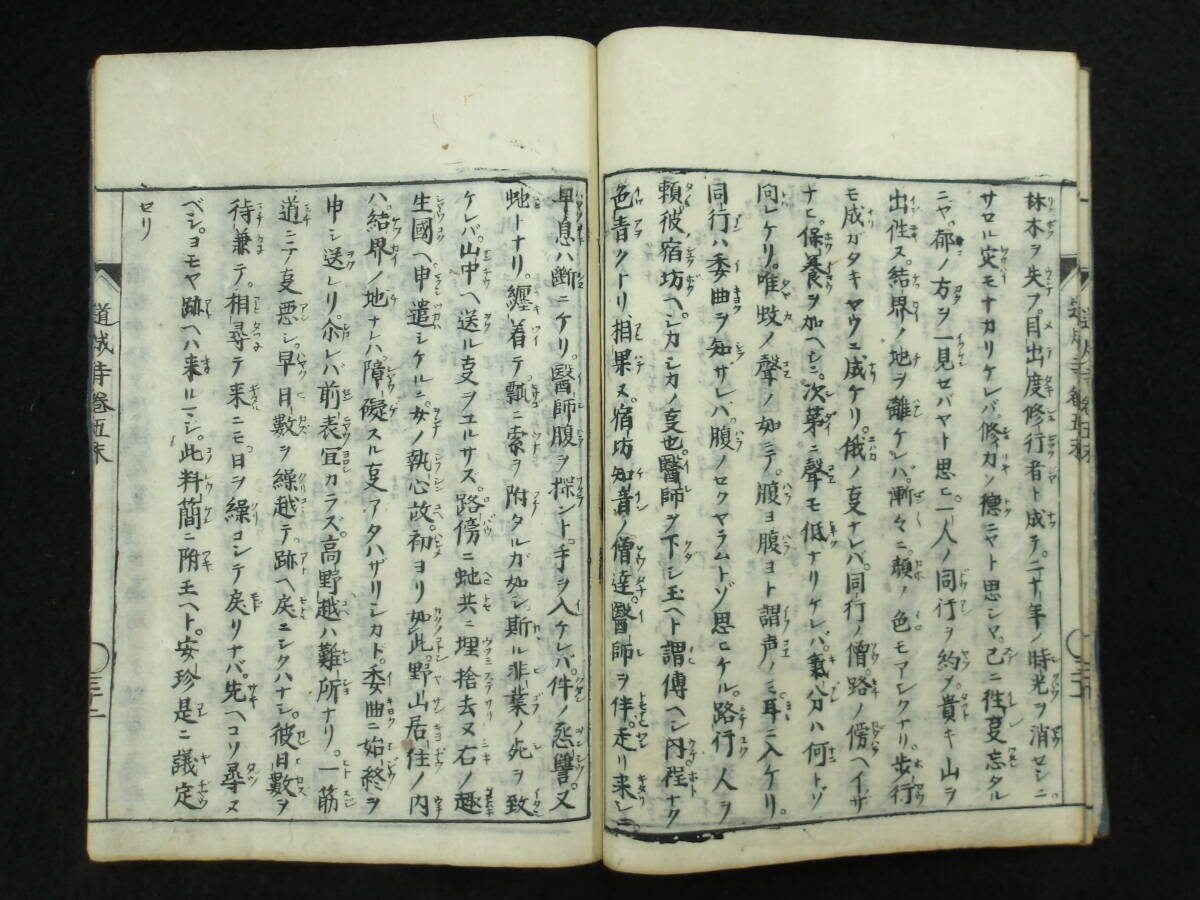 林木ヲ失フ。目出度修行者ト成テ。二十年ノ時光ヲ消セシニ。
サロル定モナカリケレバ。修力ノ德ニヤト思シマ。已ニ徃夏忘タル
ニヤ。郁ノ方ヲ一見セバヤト思ヒ。一人ノ同行ヲ約ソ。貴キ山ヲ
出徃ヌ。結界ノ地ヲ離ケレバ。漸々ニ顏ノ色モアシクナリ。歩行
モ成ガタキヤウニ成ケリ。俄ノ夏ナレバ。同行ノ僧路ノ傍ヘイザ
ナヒ。保養ヲ加ヘシニ。次第ニ聲モ低ナリケレバ。氣分ハ何トゾ
向レケリ。唯蚊ノ聲ノ如ニテ。腹ヨ腹ヨト謂声ノミ耳ニ入ケリ。
同行ハ委曲ヲ知ザレバ。腹ノセクヤラムトゾ思ヒケル。路行人ヲ
賴。彼宿坊ヘシカシカノ夏也。醫師ヲ下シ玉ヘト謂傳ヘシ。内程ナク
色靑クトリ。相果ヌ。宿坊知音ノ僧達。醫師ヲ伴。走リ来レニ。
早息ハ斷ニケリ。醫師腹ヲ探ント。手ヲ入ケレバ。件ノ惡讐。又
虵トナリ。纏着テ瓢ニ索ヲ附タルガ如シ。斯ル非業ノ死ヲ致
ケレバ。山中ヘ送ル夏ヲユルサズ。路傍ニ虵共ニ埋捨去又。右ノ趣
生國ヘ申遣シケルニ。女ノ執心故。初ヨリ如此。野山居住ノ内
ハ結界ノ地ナレバ。障礙スル夏アタハザリシカド。委曲ニ始終ヲ
申シ送レリ。尒レバ前表宜カラズ。高野越ハ難所ナリ。一筋
道ニテ夏惡シ。早日數ヲ繰越テ。跡ヘ戾ニシクハナシ。彼日數ヲ
待兼テ。相尋テ来ニモ。日ヲ繰コシテ戾リナバ。先ヘコソ尋ヌ
ベシ。ヨモヤ跡ヘハ来ルマジ。此料簡ニ附玉ヘト。安珍是ニ議定
セリ
道成寺卷五末
三十二